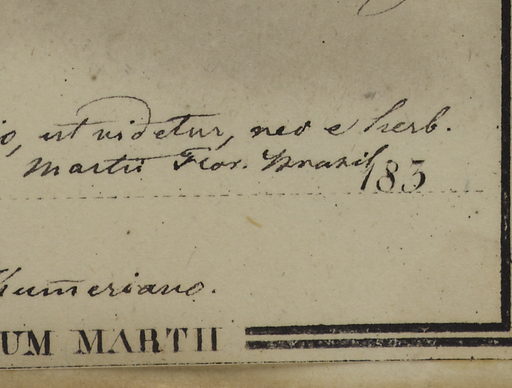 o, ut videtur, neo e herb.
Martii Flor. Brasil
183
Kumeriano.
UM MARTII